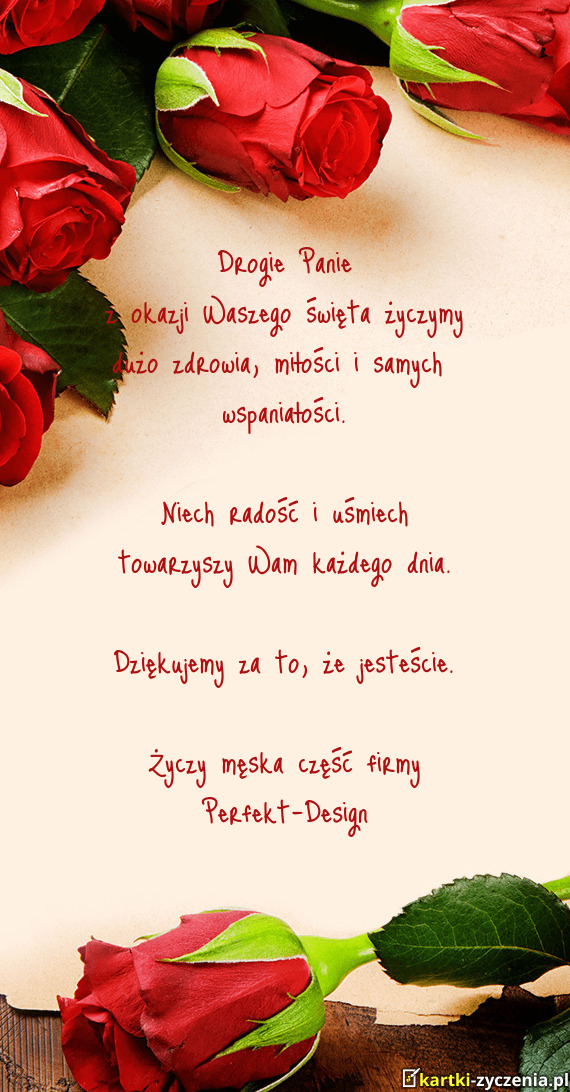 Drogie Panie
z okazji Waszego święta życzymy
dużo zdrowia, miłości i samych
wspaniałości.
Niech radość i uśmiech
towarzyszy Wam każdego dnia.
Dziękujemy za to, że jesteście.
Życzy męska część firmy
Perfekt-Design
kartki-zyczenia.pl